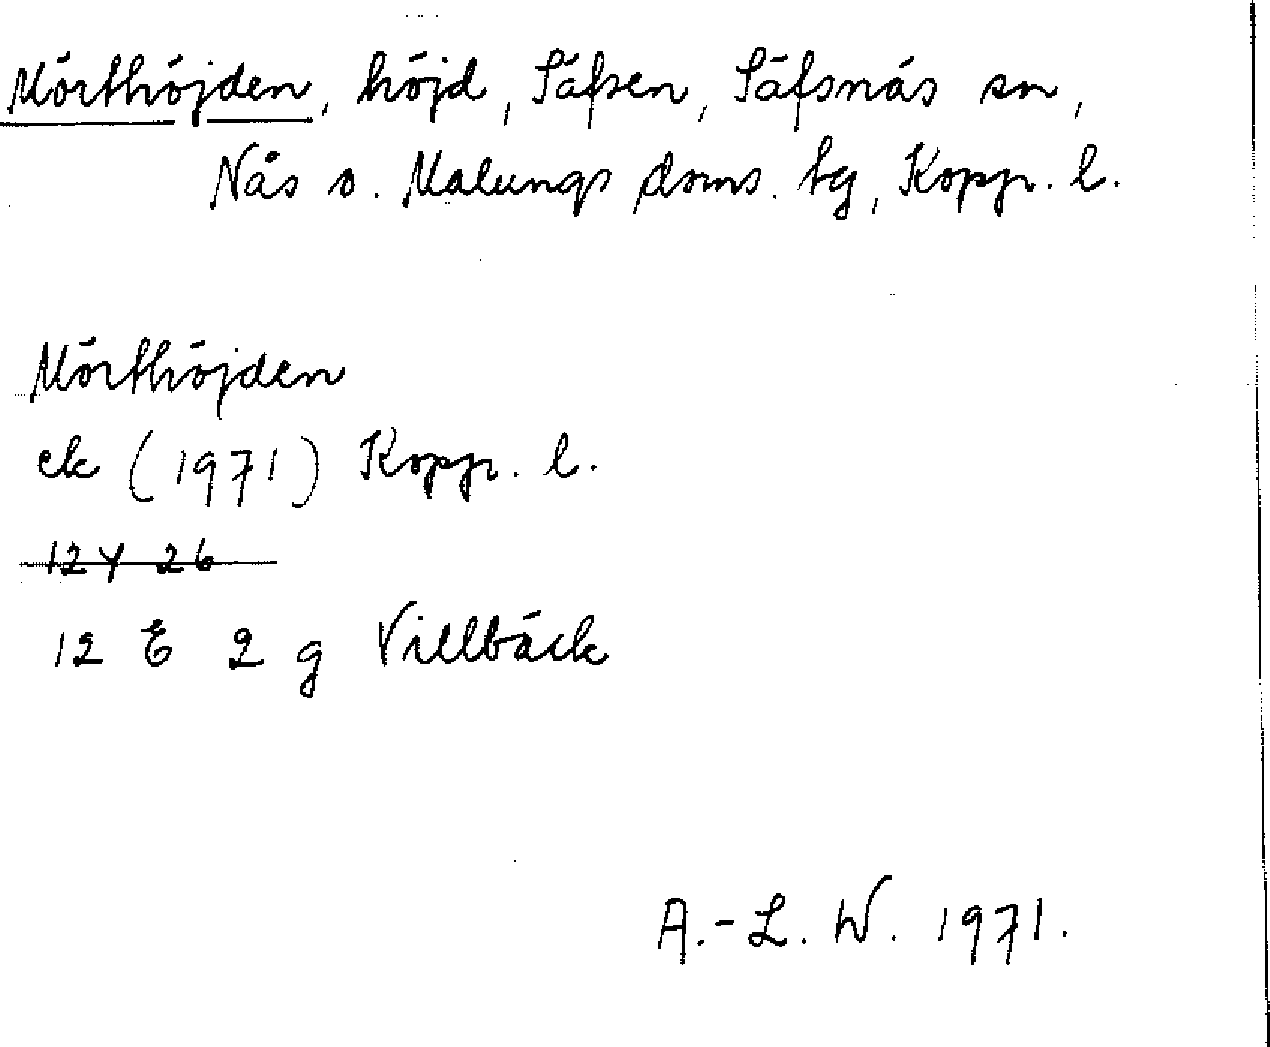 Mörthöjden, höjd, Säfsen, Säfsnäs sn,
Nås o. Malungs doms. tg, Kopp. l.
Mörthöjden
ek (1971) Kopp. l.
12 Y 26
12 E 2 g Villbäck
A.-L. W. 1971.